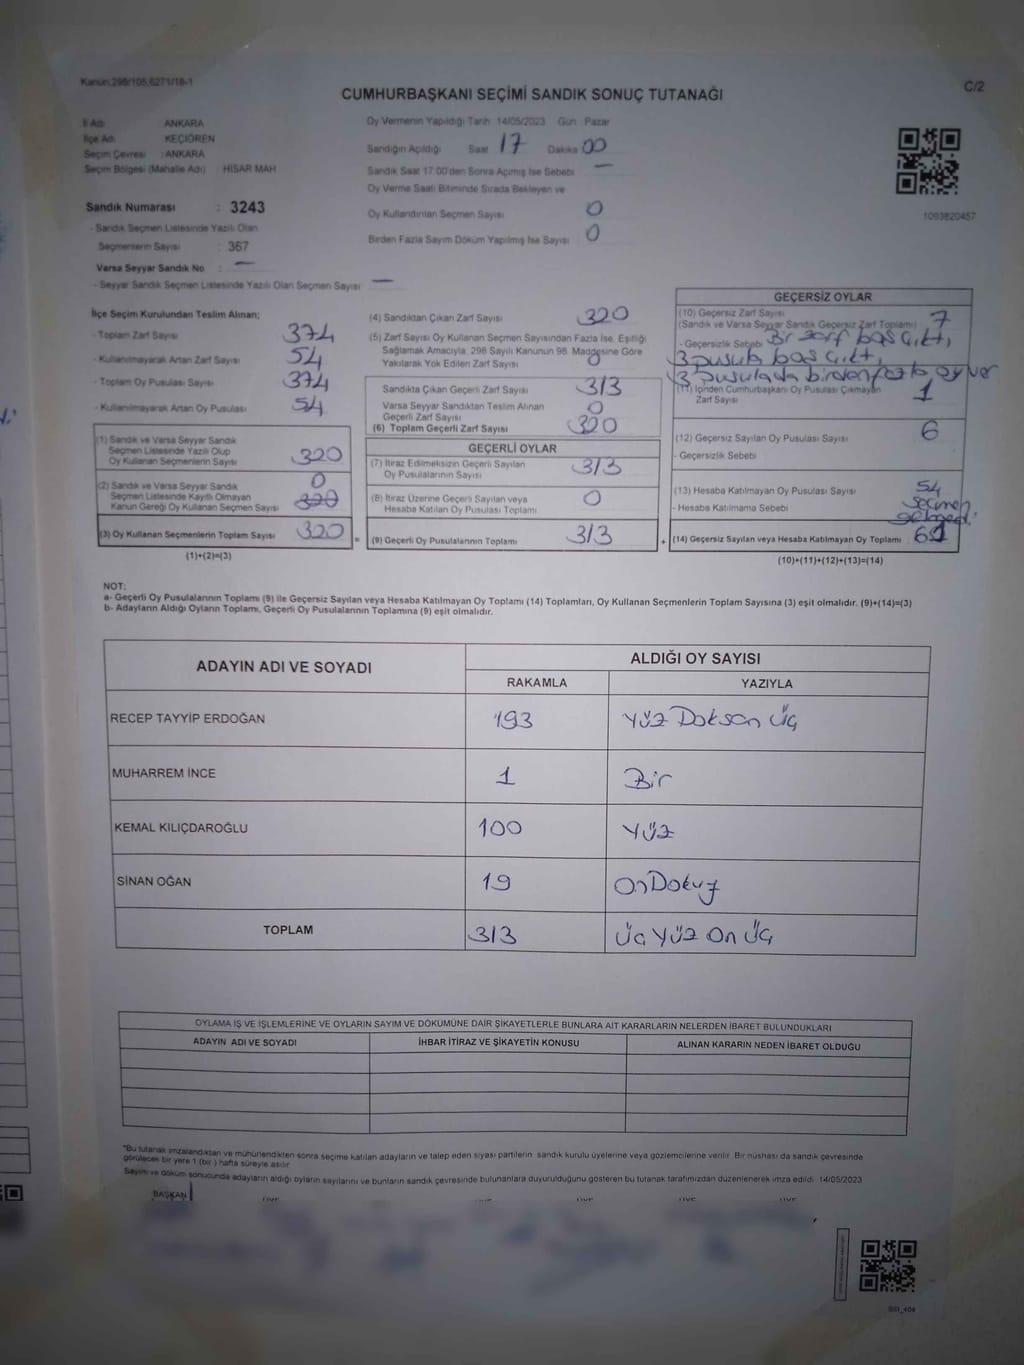 Kanun:298/105,6271/18-1
C/2
CUMHURBAŞKANI SEÇİMİ SANDIK SONUÇ TUTANAĞI
İl Adı ANKARA
İlçe Adı KEÇİÖREN
Seçim Çevresi : ANKARA
Seçim Bölgesi (Mahalle Adı) HİSAR MAH
Sandık Numarası : 3243
- Sandık Seçmen Listesinde Yazılı Olan
Seçmenlerin Sayısı : 367
Varsa Seyyar Sandık No : —
- Seyyar Sandık Seçmen Listesinde Yazılı Olan Seçmen Sayısı —
Oy Vermenin Yapıldığı Tarih: 14/05/2023 Gün: Pazar
Sandığın Açıldığı Saat 17 Dakika 00
Sandık Saat 17:00'den Sonra Açımış İse Sebebi —
Oy Verme Saati Bitiminde Sırada Bekleyen ve
Oy Kullandırılan Seçmen Sayısı 0
Birden Fazla Sayım Döküm Yapılmış İse Sayısı 0
1093820457
İlçe Seçim Kurulundan Teslim Alınan;
- Toplam Zarf Sayısı 374
- Kullanılmayarak Artan Zarf Sayısı 54
- Toplam Oy Pusulası Sayısı 374
- Kullanılmayarak Artan Oy Pusulası 54
(1) Sandık ve Varsa Seyyar Sandık
Seçmen Listesinde Yazılı Olup
Oy Kullanan Seçmenlerin Sayısı 320
(2) Sandık ve Varsa Seyyar Sandık 0
Seçmen Listesinde Kayıtlı Olmayan
Kanun Gereği Oy Kullanan Seçmen Sayısı 320
(3) Oy Kullanan Seçmenlerin Toplam Sayısı 320
(1)+(2)=(3)
(4) Sandıktan Çıkan Zarf Sayısı 320
(5) Zarf Sayısı Oy Kullanan Seçmen Sayısından Fazla İse, Eşitliği
Sağlamak Amacıyla, 298 Sayılı Kanunun 98. Maddesine Göre
Yakılarak Yok Edilen Zarf Sayısı 0
Sandıkta Çıkan Geçerli Zarf Sayısı 313
Varsa Seyyar Sandıktan Teslim Alınan
Geçerli Zarf Sayısı 0
(6) Toplam Geçerli Zarf Sayısı 320
GEÇERLİ OYLAR
(7) İtiraz Edilmeksizin Geçerli Sayılan
Oy Pusulalarının Sayısı 313
(8) İtiraz Üzerine Geçerli Sayılan veya
Hesaba Katılan Oy Pusulası Toplamı 0
= (9) Geçerli Oy Pusulalarının Toplamı 313
GEÇERSİZ OYLAR
(10) Geçersiz Zarf Sayısı
(Sandık ve Varsa Seyyar Sandık Geçersiz Zarf Toplamı) 7
- Geçersizlik Sebebi Bir zarf boş çıktı,
3 pusula boş çıktı,
3 pusulada birden fazla oy ver
(11) İçinden Cumhurbaşkanı Oy Pusulası Çıkmayan
Zarf Sayısı 1
(12) Geçersiz Sayılan Oy Pusulası Sayısı 6
- Geçersizlik Sebebi
(13) Hesaba Katılmayan Oy Pusulası Sayısı 54
- Hesaba Katılmama Sebebi seçmen
gelmedi.
+ (14) Geçersiz Sayılan veya Hesaba Katılmayan Oy Toplamı
(10)+(11)+(12)+(13)=(14)
NOT:
a- Geçerli Oy Pusulalarının Toplamı (9) ile Geçersiz Sayılan veya Hesaba Katılmayan Oy Toplamı (14) Toplamları, Oy Kullanan Seçmenlerin Toplam Sayısına (3) eşit olmalıdır. (9)+(14)=(3)
b- Adayların Aldığı Oyların Toplamı, Geçerli Oy Pusulalarının Toplamına (9) eşit olmalıdır.
ADAYIN ADI VE SOYADI ALDIĞI OY SAYISI
RAKAMLA YAZIYLA
RECEP TAYYİP ERDOĞAN 193 Yüz Doksan Üç
MUHARREM İNCE 1 Bir
KEMAL KILIÇDAROĞLU 100 Yüz
SİNAN OĞAN 19 On Dokuz
TOPLAM 313 Üç Yüz On Üç
OYLAMA İŞ VE İŞLEMLERİNE VE OYLARIN SAYIM VE DÖKÜMÜNE DAİR ŞİKAYETLERLE BUNLARA AİT KARARLARIN NELERDEN İBARET BULUNDUKLARI
ADAYIN ADI VE SOYADI İHBAR İTİRAZ VE ŞİKAYETİN KONUSU ALINAN KARARIN NEDEN İBARET OLDUĞU
*Bu tutanak imzalandıktan ve mühürlendikten sonra seçime katılan adayların ve talep eden siyasi partilerin sandık kurulu üyelerine veya gözlemcilerine verilir. Bir nüshası da sandık çevresinde
görülecek bir yere 1 (bir) hafta süreyle asılır.
Sayım ve döküm sonucunda adayların aldığı oyların sayılarını ve bunların sandık çevresinde bulunanlara duyurulduğunu gösteren bu tutanak tarafımızdan düzenlenerek imza edildi. 14/05/2023
BAŞKAN